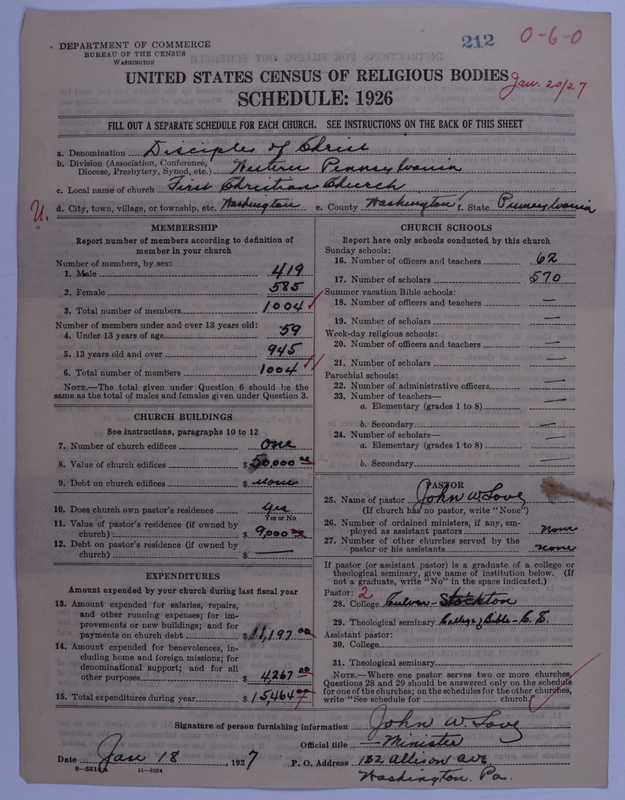 DEPARTMENT OF COMMERCE
BUREAU OF THE CENSUS
WASHINGTON
212
0-6-0
UNITED STATES CENSUS OF RELIGIOUS BODIES
Jan. 20/27
SCHEDULE: 1926
FILL OUT A SEPARATE SCHEDULE FOR EACH CHURCH. SEE INSTRUCTIONS ON THE BACK OF THIS SHEET
a. Denomination Disciples of Christ
b. Division (Association, Conference, Diocese, Presbytery, Synod, etc.) Western Pennsylvania
c. Local name of church First Christian Church
U.
d. City, town, village, or township, etc. Washington e. County Washington f. State Pennsylvania
MEMBERSHIP
Report number of members according to definition of
member in your church
Number of members, by sex:
1. Male 419
2. Female 585
3. Total number of members 1004
Number of members under and over 13 years old:
4. Under 13 years of age 59
5. 13 years old and over 945
6. Total number of members 1004
NOTE.—The total given under Question 6 should be
same as the total of males and females given under Question 3.
CHURCH BUILDINGS
See instructions, paragraphs 10 to 12
7. Number of church edifices one
8. Value of church edifices $ 50,000 00
9. Debt on church edifices $ none
10. Does church own pastor's residence yes
Yes or No
11. Value of pastor's residence (if owned by
church) $ 9,000 00
12. Debt on pastor's residence (if owned by
church) $ —
EXPENDITURES
Amount expended by your church during last fiscal year
13. Amount expended for salaries, repairs,
and other running expenses; for im-
provements or new buildings; and for
payments on church debt $ 11,197 00
14. Amount expended for benevolences, in-
cluding home and foreign missions; for
denominational support; and for all
other purposes $ 4,267 00
15. Total expenditures during year $ 15,464 00
CHURCH SCHOOLS
Report here only schools conducted by this church
Sunday schools:
16. Number of officers and teachers 62
17. Number of scholars 570
Summer vacation Bible schools:
18. Number of officers and teachers —
19. Number of scholars —
Week-day religious schools:
20. Number of officers and teachers —
21. Number of scholars —
Parochial schools:
22. Number of administrative officers —
23. Number of teachers—
a. Elementary (grades 1 to 8) —
b. Secondary —
24. Number of scholars—
a. Elementary (grades 1 to 8) —
b. Secondary —
PASTOR
25. Name of pastor John W. Love
(If church has no pastor, write "None")
26. Number of ordained ministers, if any, em-
ployed as assistant pastors none
27. Number of other churches served by the
pastor or his assistants none
If pastor (or assistant pastor) is a graduate of a college or
theological seminary, give name of institution below. (If
not a graduate, write "No" in the space indicated.)
Pastor: 2
28. College Culver-Stockton
29. Theological seminary College of Bible-C.S.
Assistant pastor:
30. College
31. Theological seminary
NOTE.—Where one pastor serves two or more churches,
Questions 28 and 29 should be answered only on the schedule
for one of the churches; on the schedules for the other churches,
write "See schedule for church."
Signature of person furnishing information John W. Love
Official title Minister
Date Jan 18 1927
P. O. Address 132 Allison Ave
8—5513A 11—9054
Washington, Pa.